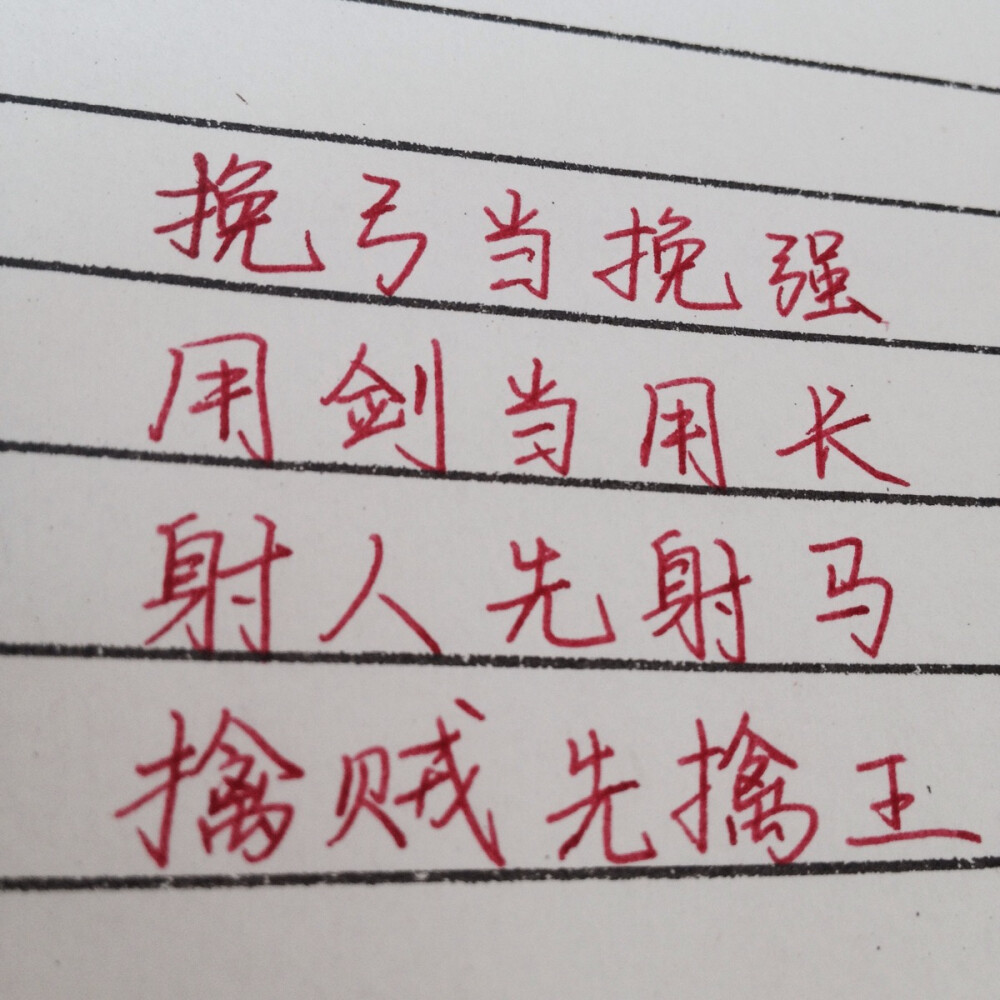 挽弓当挽强
用剑当用长
射人先射马
擒贼先擒王